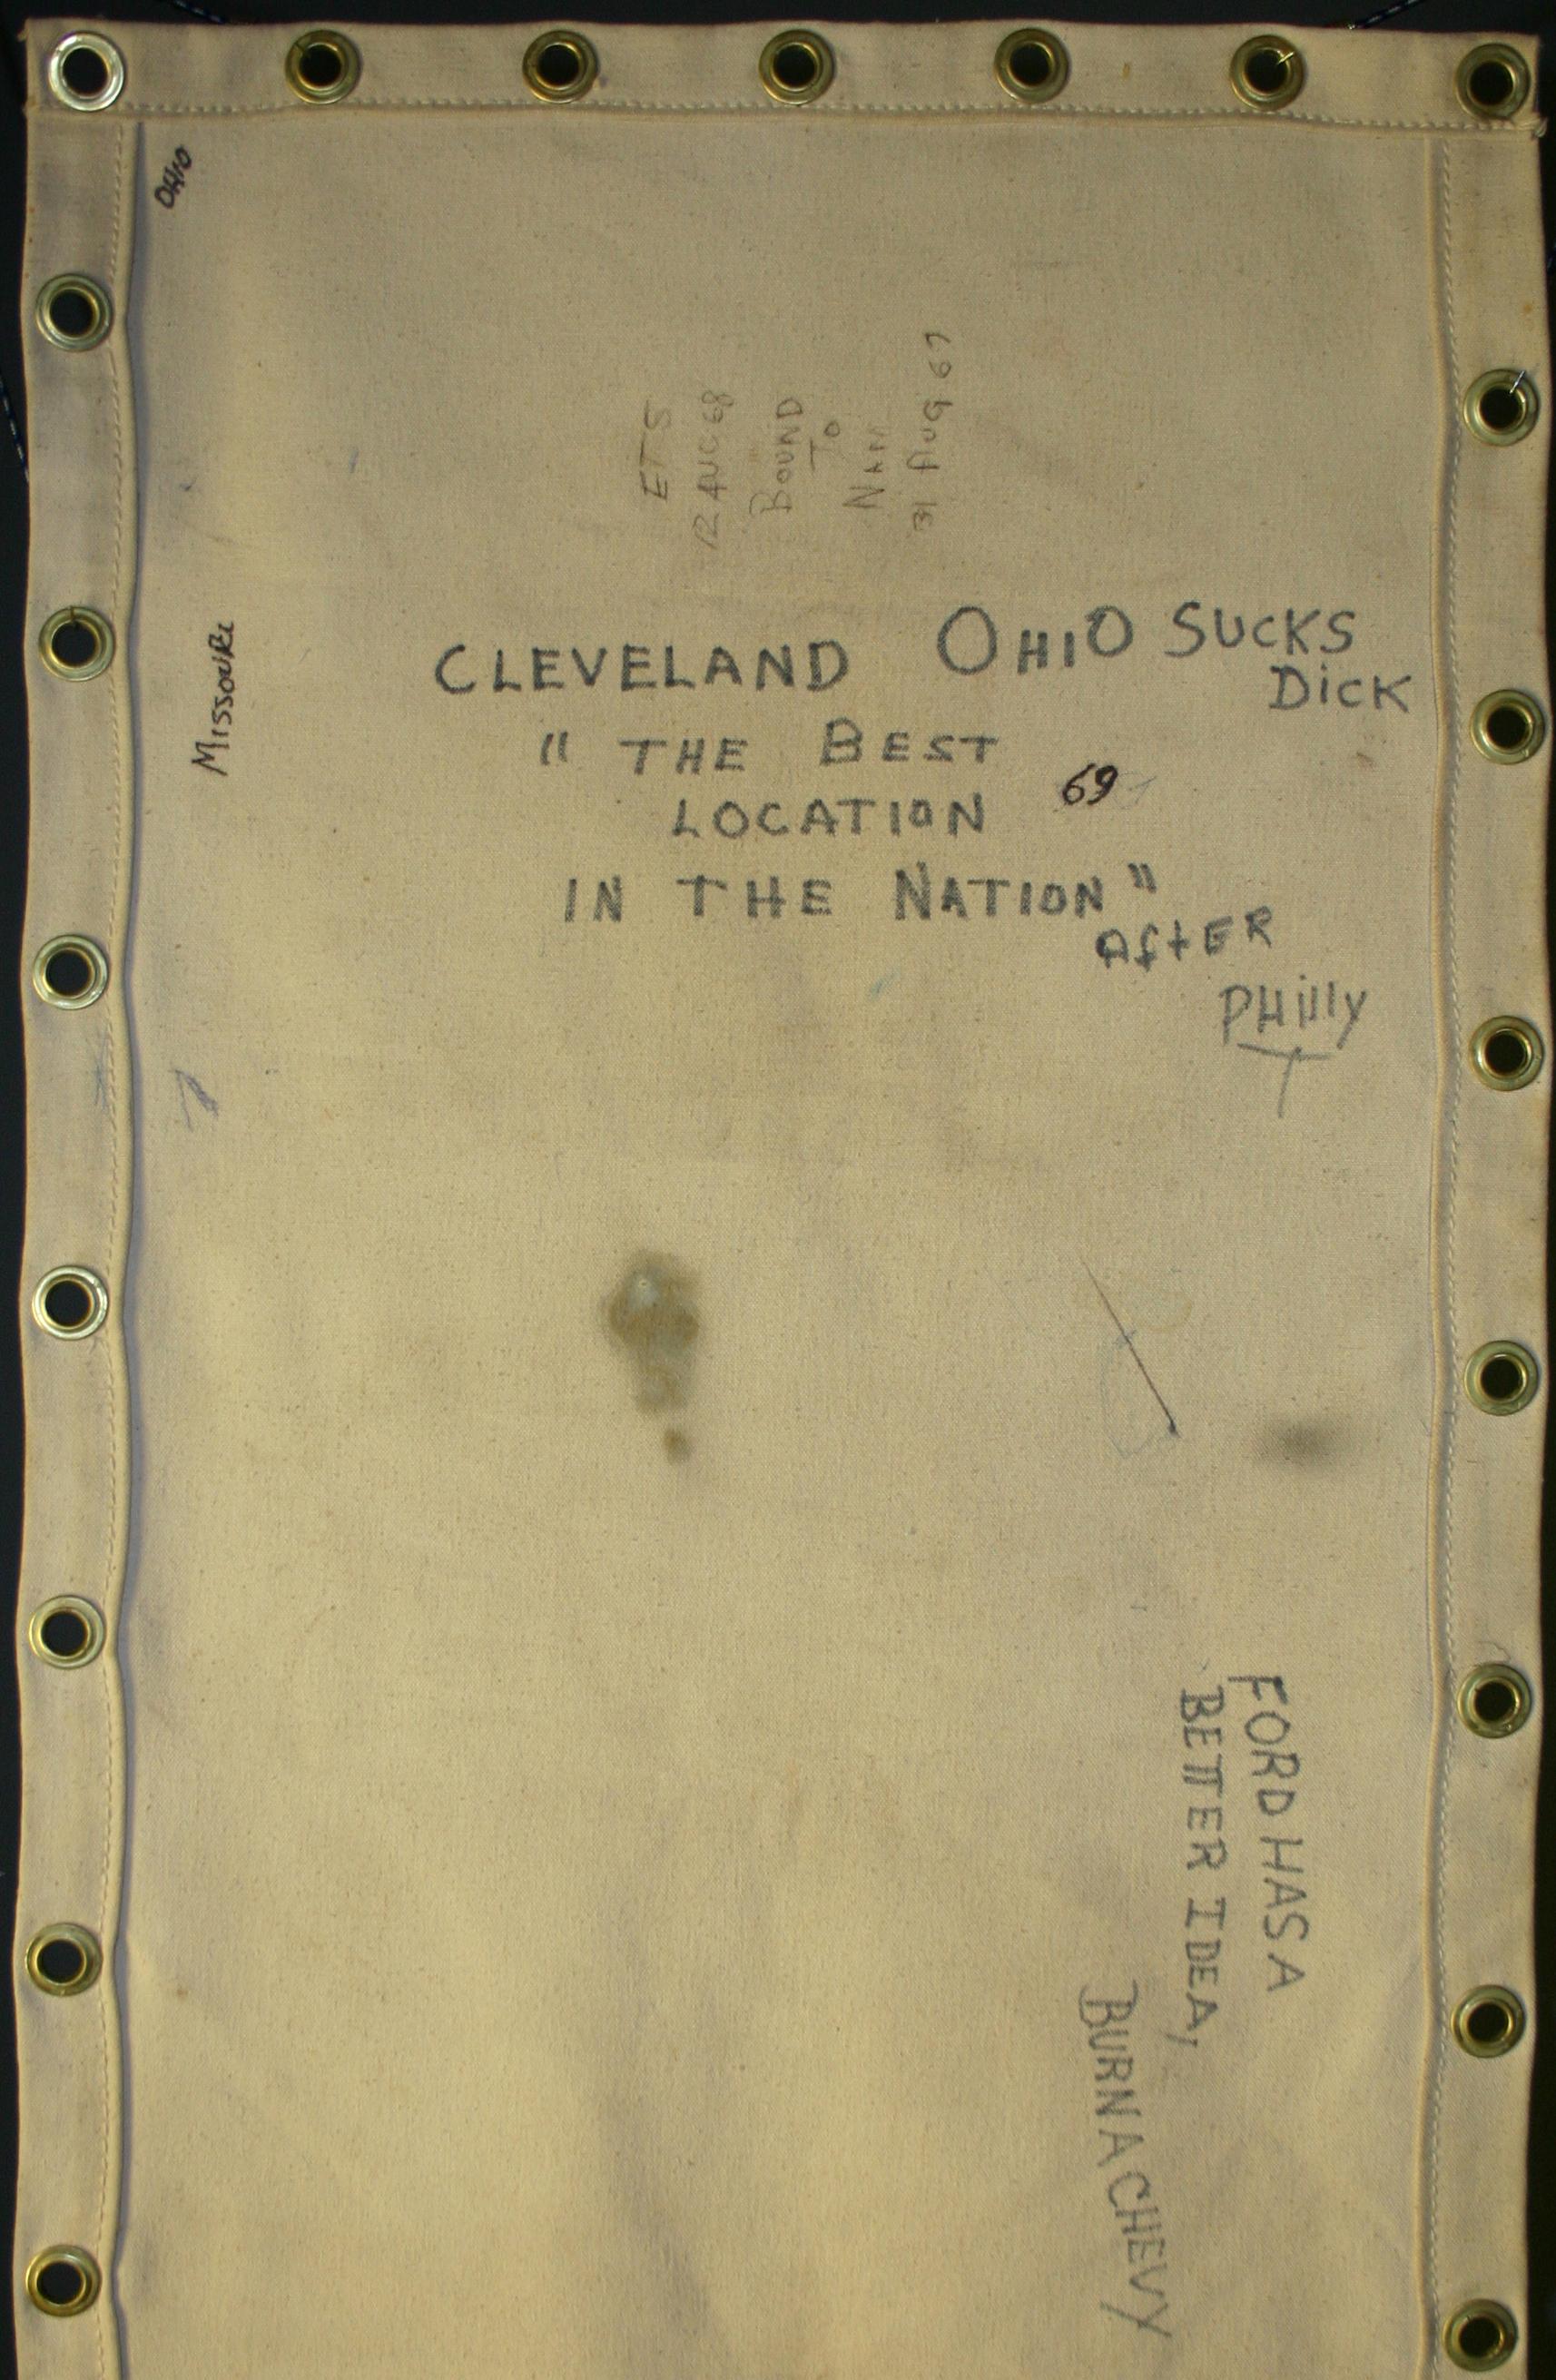 OHIO
ETS
12 AUG 68
BOUND
TO
NAM
31 AUG 67
MISSOURI
CLEVELAND OHIO SUCKS
DiCK
" THE BEST
LOCATION 69
IN THE NATION"
AftER
PHilly
FORD HAS A
BETTER IDEA,
BURN A CHEVY